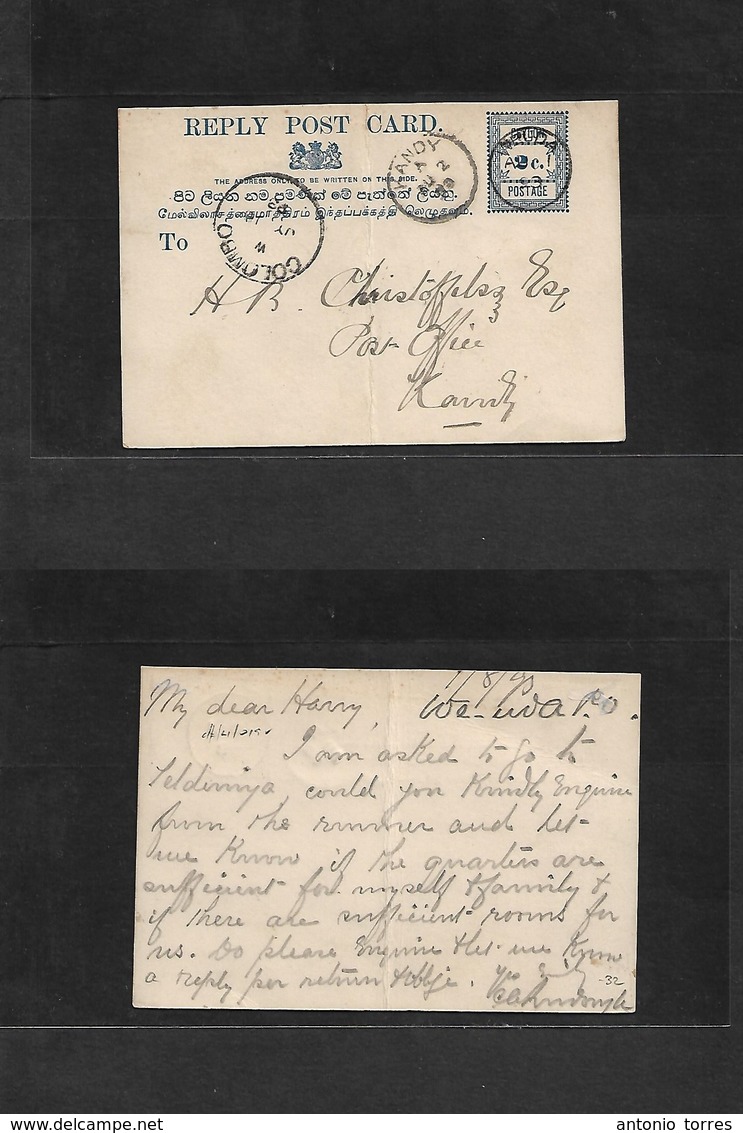 REPLY POST CARD.
THE ADDRESS ONLY TO BE WRITTEN ON THIS SIDE.
පිට ලියන නම පමණක් මේ පැත්තේ ලියනු.
மேல்விலாசத்தைமாத்திரம் இந்தப்பக்கத்தி லெழுதவும்.
KANDY
2c.
POSTAGE
COLOMBO
To
H B. Christoffelsz Esq
Post Office
Kandy
1/8/93
My dear Harry,
I am asked to go to
Teldeniya, could you Kindly Enquire
from the runner and let
me Know if the quarters are
sufficient for myself & family &
if there are sufficient rooms for
us. Do please Enquire & let me Know
a reply per return & oblige.
-32
antonio torres